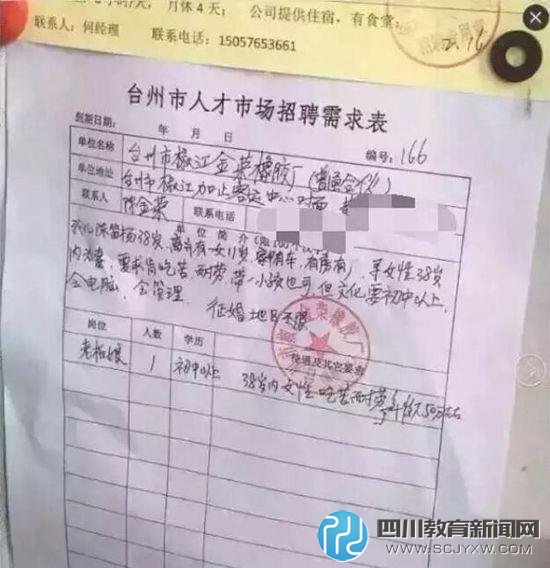 月休4天; 公司提供住宿,有食堂;
联系人:何经理 联系电话:15057653661
台州市人才市场招聘需求表
到期日期: 年 月 日 编号:166
单位名称 台州市椒江金荣橡胶厂(普通合伙)
单位地址 台州市椒江加止客运中心对面
联系人 陈金荣 联系电话
单位简介
38岁,离异有一女11岁,有车,有房,寻女性38岁
内为妻,要求肯吃苦耐劳,带一小孩也可,但文化要初中以上,
会电脑,会管理. 征婚地区不限
荣橡胶厂
岗位 人数 学历 待遇及其它要求
老板娘 1 初中以上 38岁内女性吃苦耐劳年薪50万左右
四川教育新闻网
WWW.SCJYXW.COM